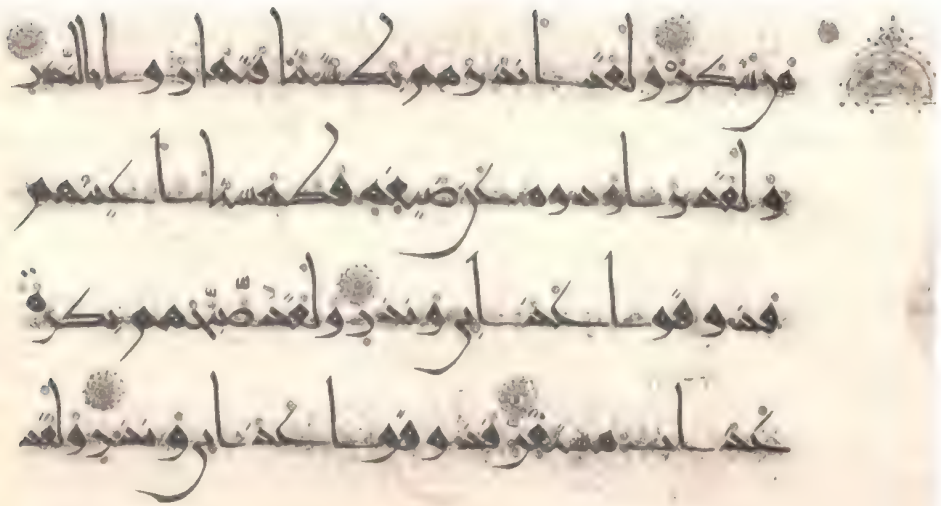 مَن شَكَرَ وَلَقَدْ أَنذَرَهُم بَطْشَتَنَا فَتَمَارَوْا بِالنُّذُرِ
وَلَقَدْ رَاوَدُوهُ عَن ضَيْفِهِ فَطَمَسْنَا أَعْيُنَهُمْ
فَذُوقُوا عَذَابِي وَنُذُرِ وَلَقَدْ صَبَّحَهُم بُكْرَةً
عَذَابٌ مُّسْتَقِرٌّ فَذُوقُوا عَذَابِي وَنُذُرِ وَلَقَدْ